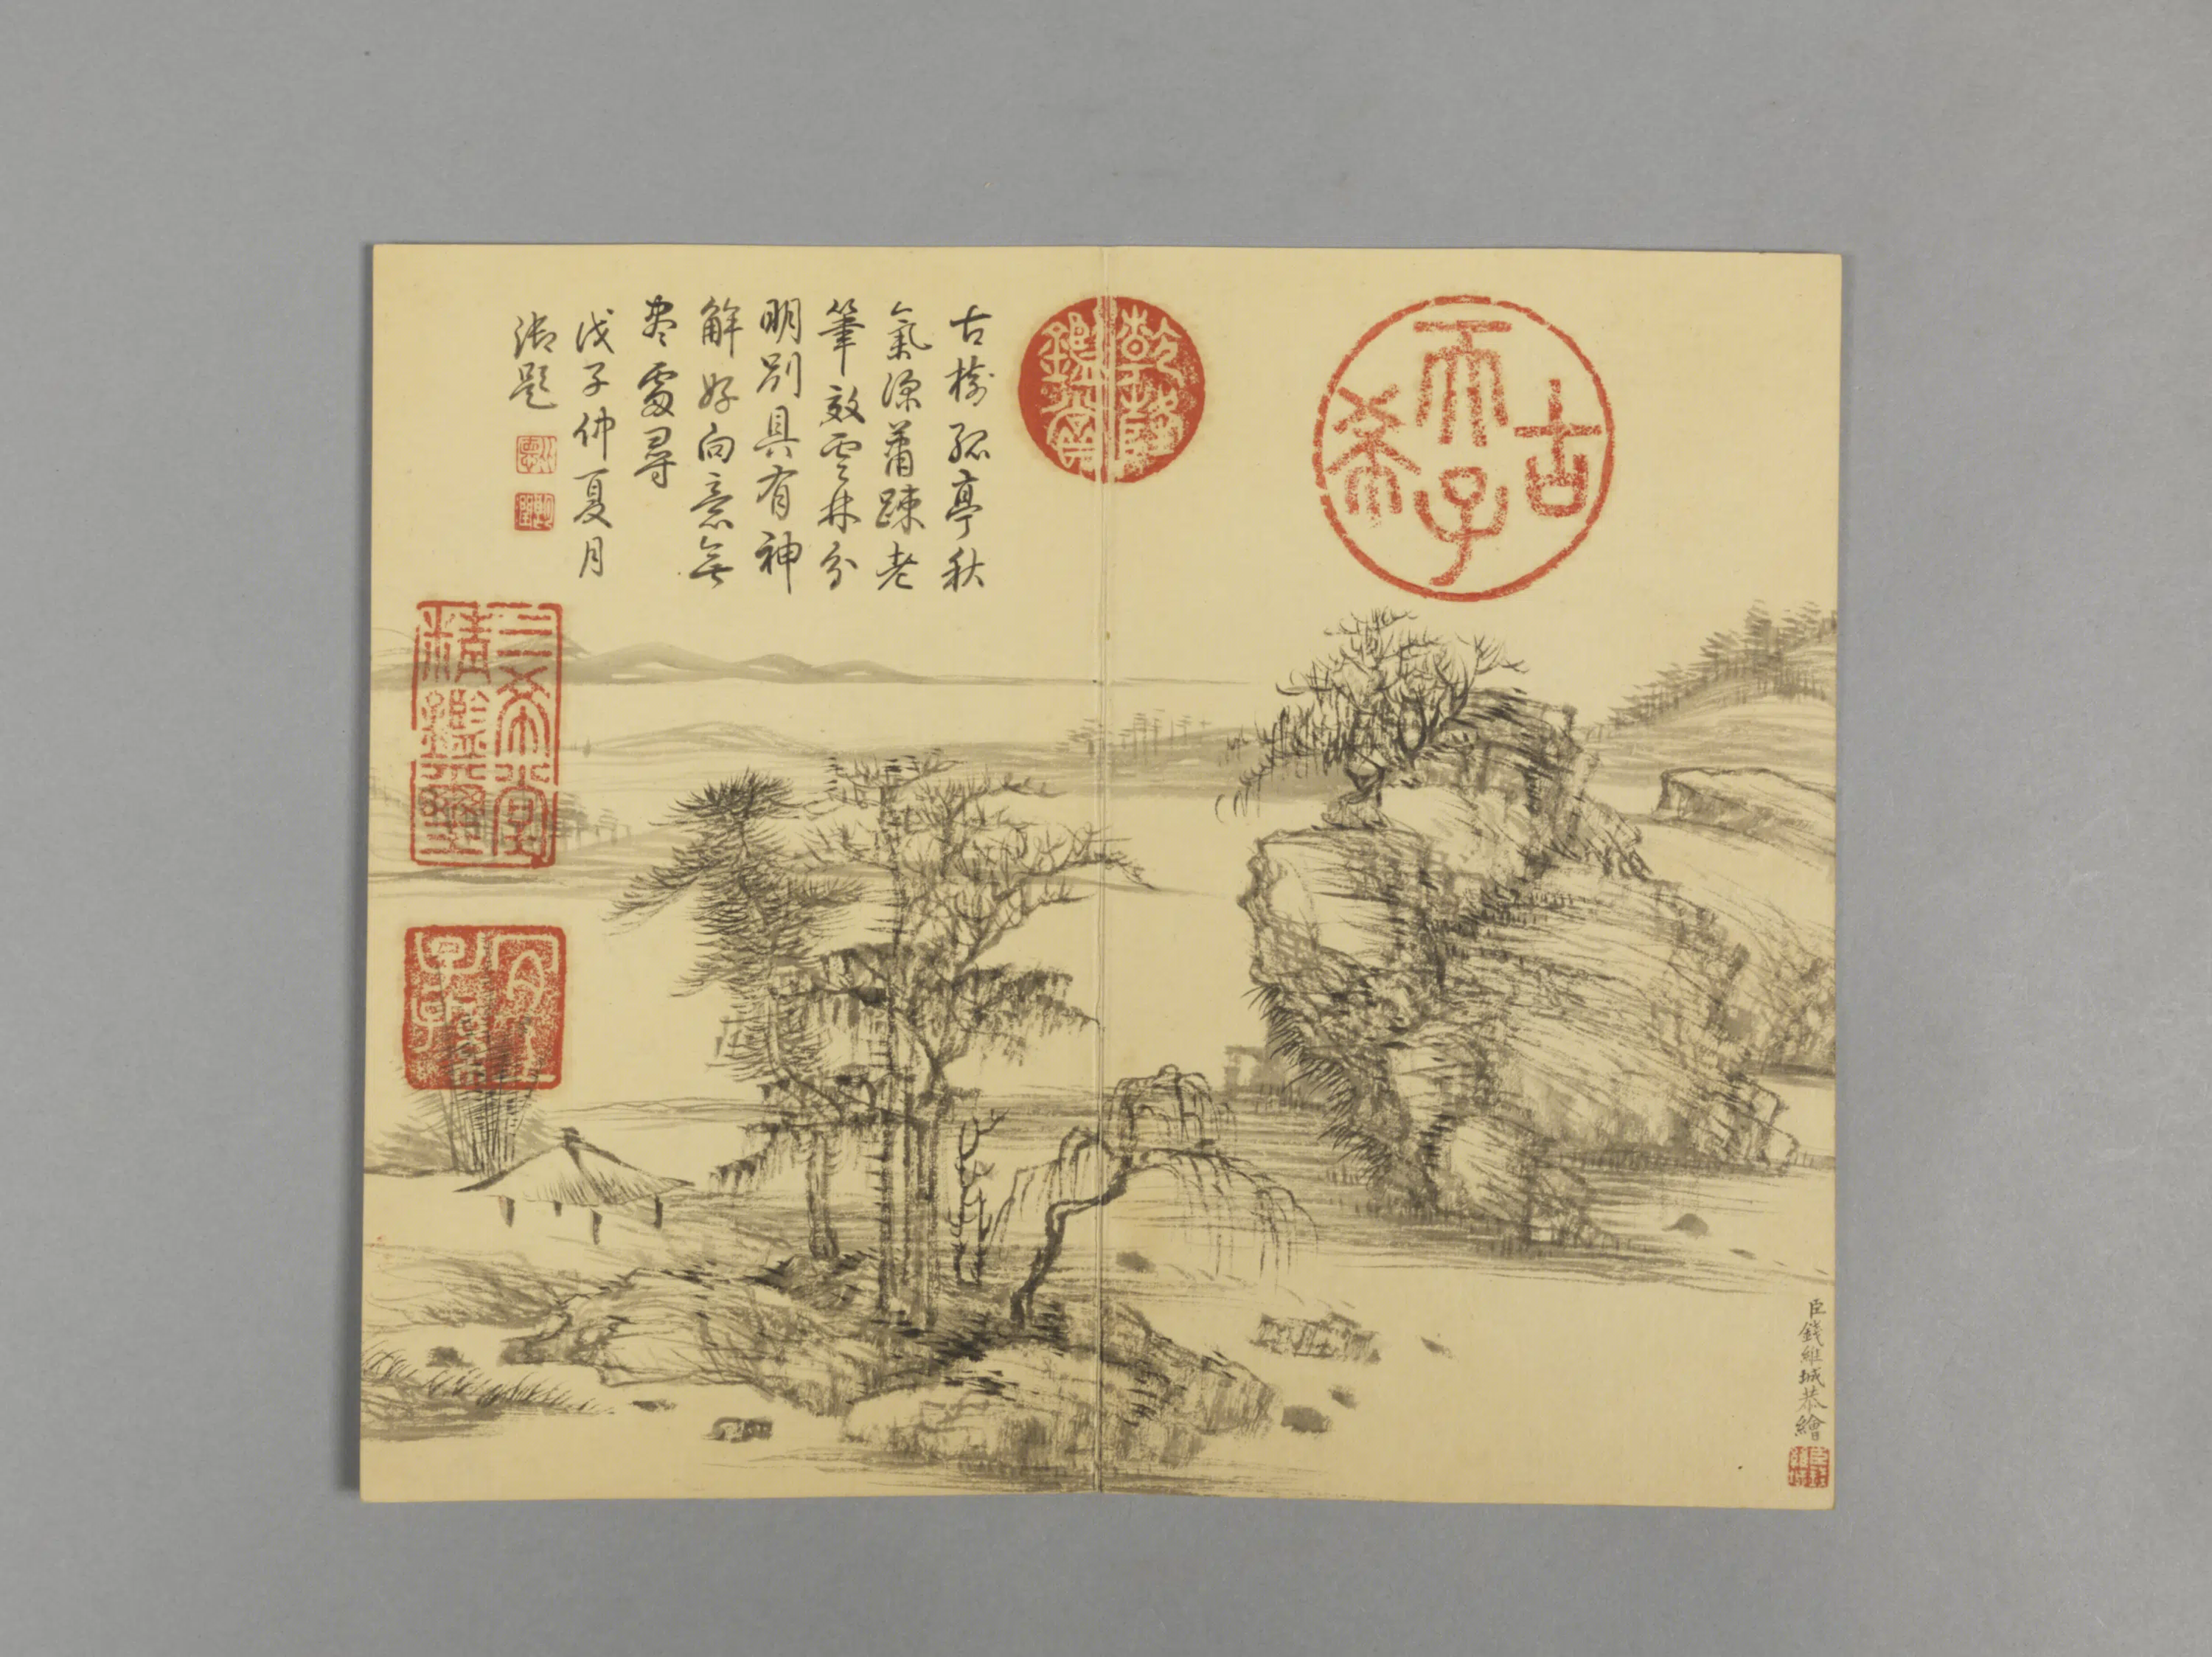 古希天子
乾隆鑑賞
古樹孤亭秋
氣深蕭疎老
筆效雲林分
明別具有神
解好向意無
盡處尋
戊子仲夏月
御題
三希堂精鑑璽
宜子孫
臣錢維城恭繪